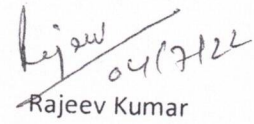 Rajeev
04/7/22
Rajeev Kumar